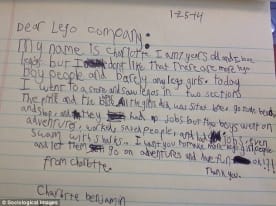 1-25-14
Dear Lego company:
My name is Charlotte. I am 7 years old and I love
legos but I don't like that there are more lego
boy people and barely any lego girls. today
I went to a store and saw legos in two sections
The pink and the blue. All the girls did was sit at home, go to the beach,
and shop, and they had no jobs but the boys went on
adventures, worked, saved people, and had jobs, even
swam with sharks. I want you to make more lego girl people
and let them go on adventures and have fun ok!?!
Thank you.
from Charlotte.
Charlotte Benjamin
© Sociological Images